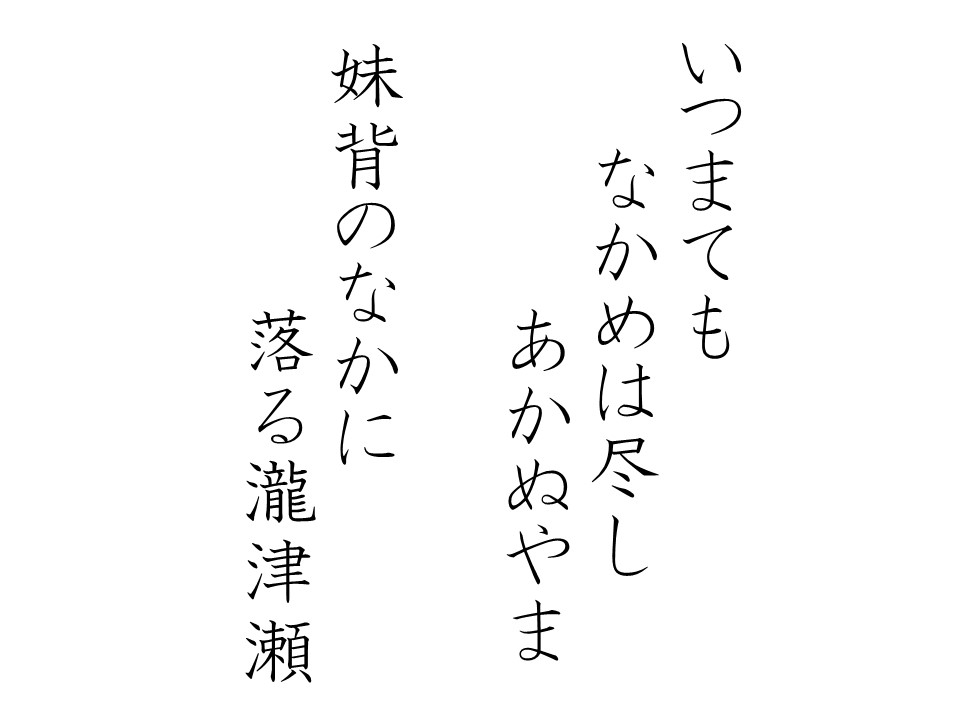 いつまても
なかめは尽し
あかぬやま
妹背のなかに
落る瀧津瀬